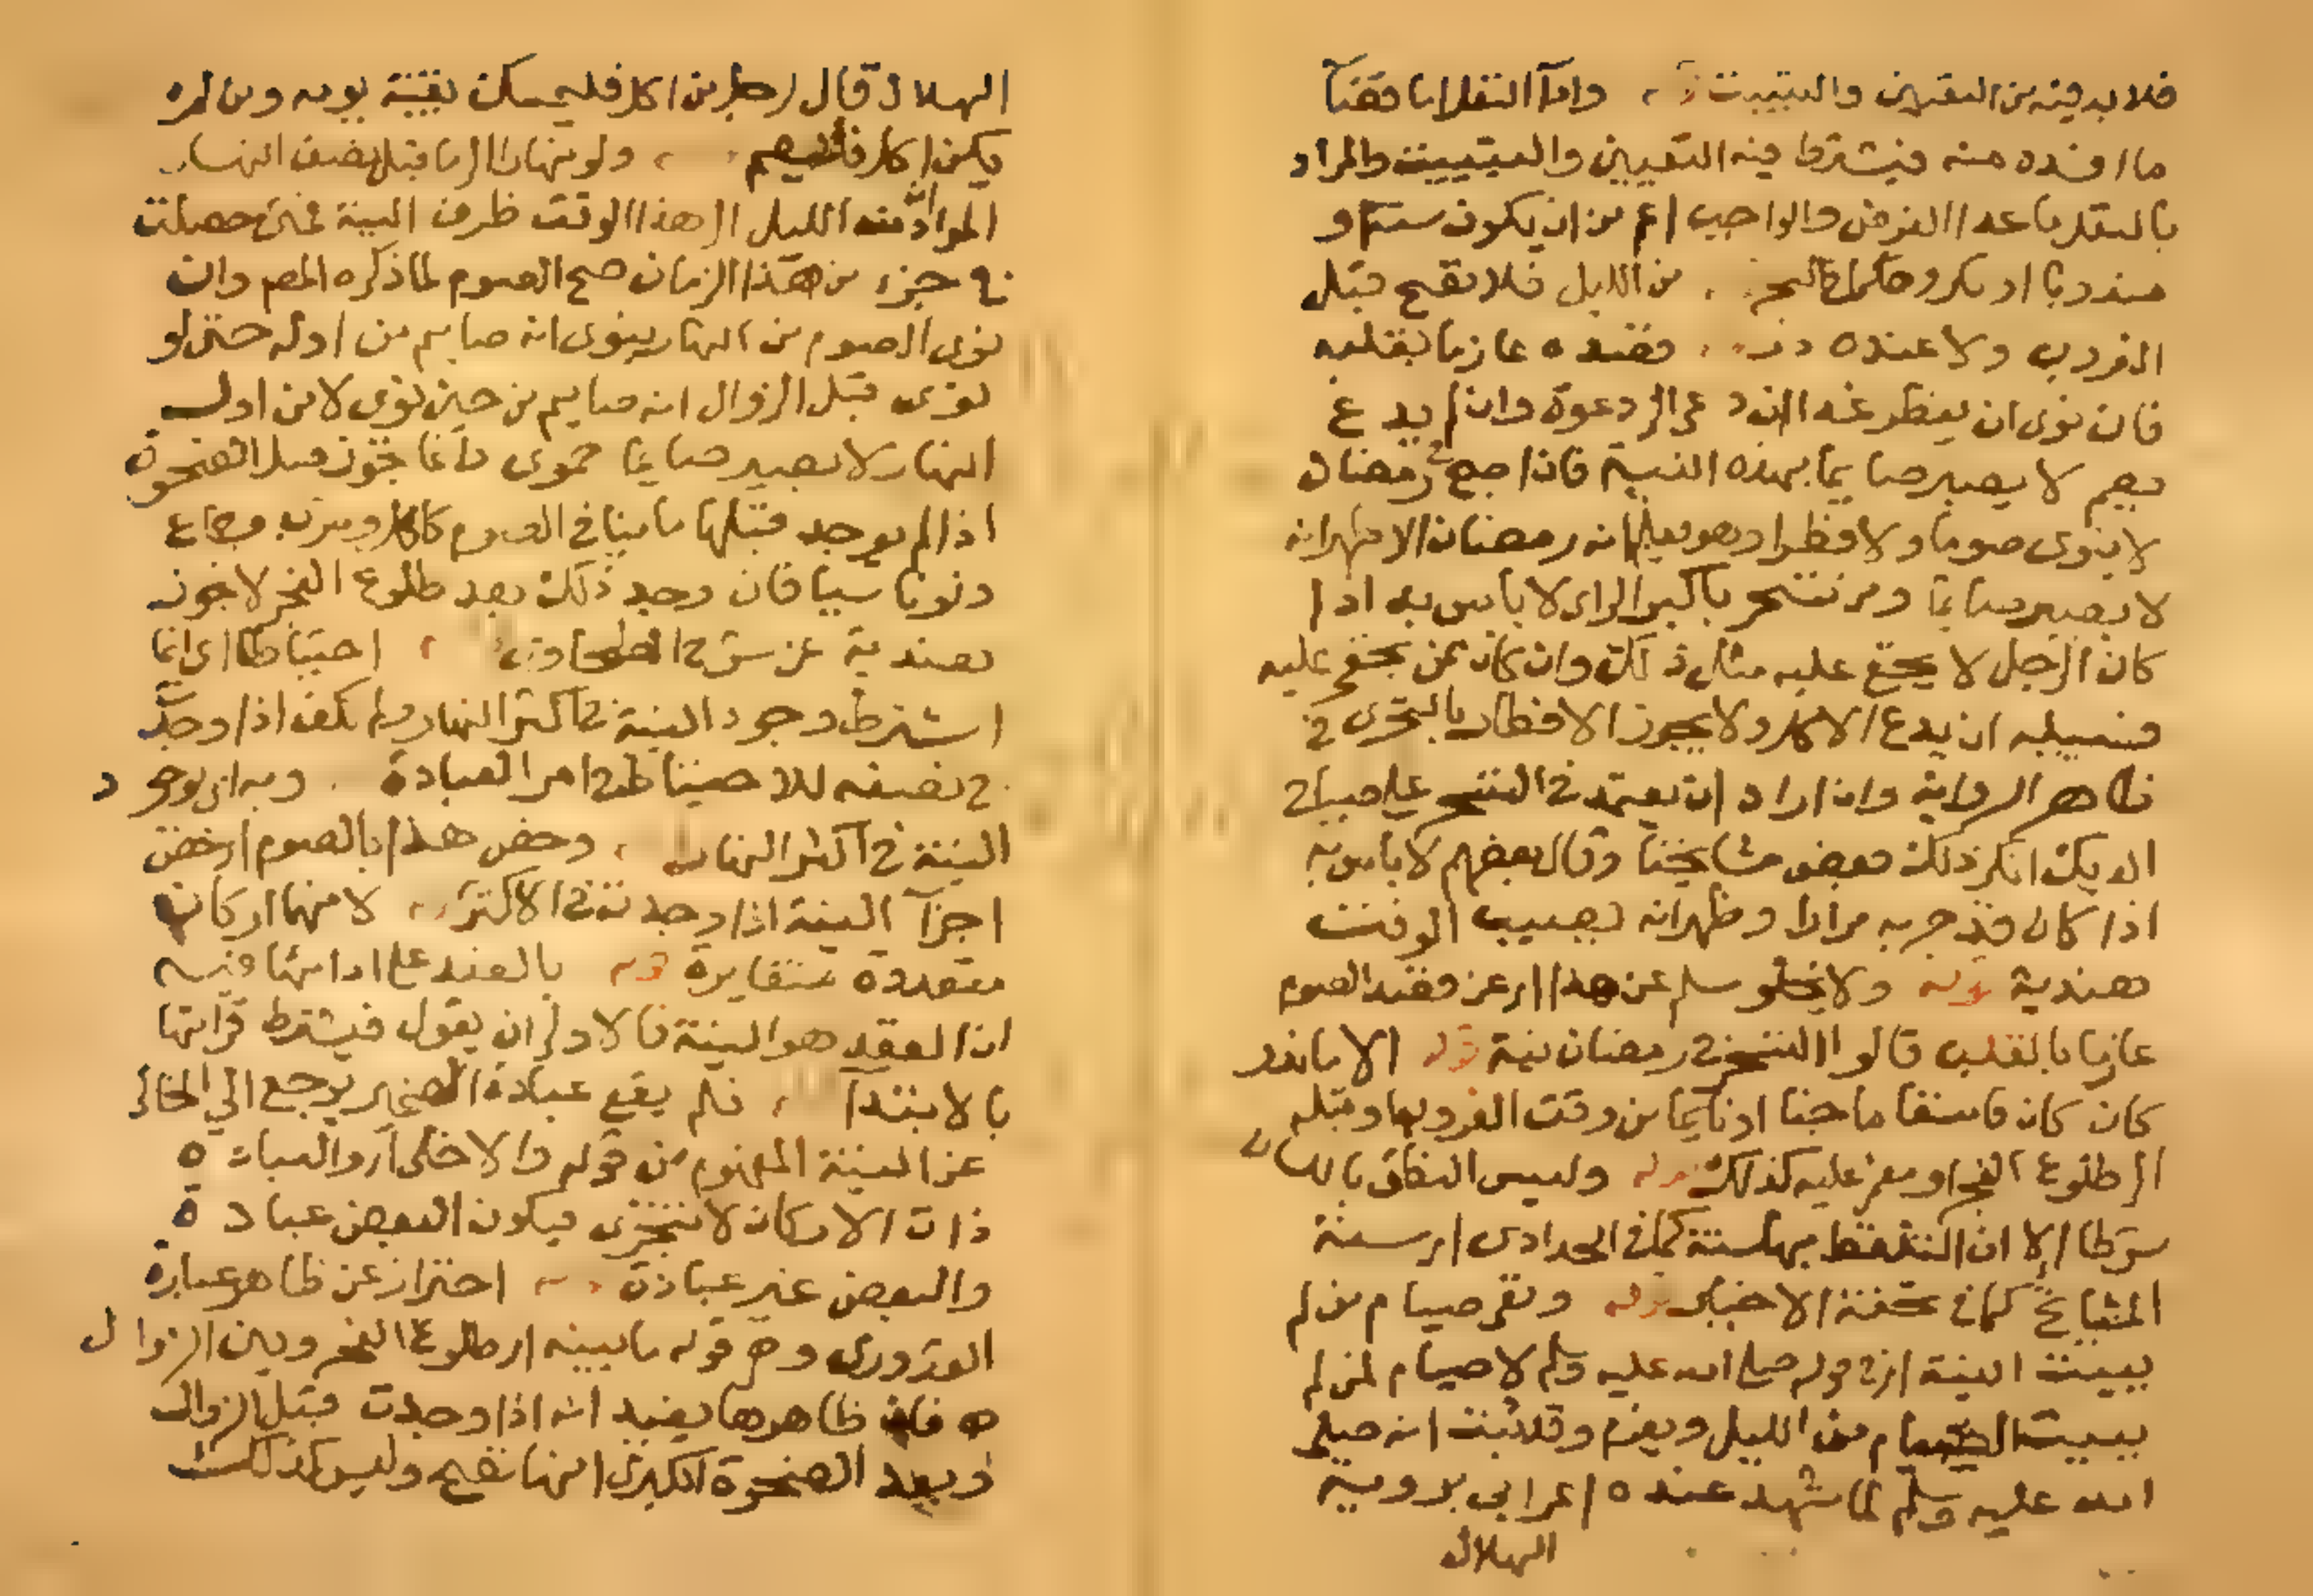 فلا بد فيه من التعيين والتبييت قوله وأما النفل أما قضآ
ما افسده منه فيشترط فيه التعيين والتبييت والمراد
بالنفل ما عدا الفرض والواجب اعم من ان يكون سنة او
مندوبا او مكروها كما في البحر من الليل فلا تصح قبل
الغروب ولا عنده قصده عازما بقلبه
فان نوى ان يفطر غدا ان دعي الى دعوة وان لم يدع
يصم لا يصير صايما بهذه النية فان اصبح في رمضان
لا ينوى صوما ولا فطرا وهو يعلم انه رمضان الاظهر انه
لا يصير صايما ومن تسحر باكبر الراى لا باس به اذا
كان الرجل لا يخفى عليه مثل ذلك وان كان ممن يخفى عليه
فسبيله ان يدع الاكل ولا يجوز الافطار بالتحرى في
ظاهر الرواية وان اراد ان يعتمد في التسحر على صياح
الديك انكر ذلك بعض مشايخنا وقال بعضهم لا باس به
اذا كان قد جربه مرارا وظهر انه يصيب الوقت
هندية قوله ولا يخلو مسلم عن هذا اى عن قصد الصوم
عازما بالقلب قالوا التسحر في رمضان نية قوله الا ما ندر
كان كان فاسقا ماجنا او نايما من وقت الغروب او قبله
الى طلوع الفجر او مغمى عليه كذلك قوله وليس النطق باللسان
شرطا الا ان التلفظ بها سنة كما في الحدادى اى سنة
المشايخ كما في تحفة الاخيار قوله ونفى صيام من لم
يبيت النية اى في قوله صلى الله عليه وسلم لا صيام لمن لم
يبيت الصيام من الليل ويعزم وقد ثبت انه صلى
الله عليه وسلم لما شهد عنده اعرابى برويية
الهلال
الهلال قال لرجل من اكل فليمسك بقية يومه ومن لم
يكن اكل فليصم ولو نهارا الى ما قبل نصف النهار
المراد ان من الليل الى هذا الوقت ظرف النية فمتى حصلت
في جزء من هذا الزمان صح الصوم لما ذكره المص وان
نوى الصوم من النهار ينوى انه صايم من اوله حتى لو
نوى قبل الزوال انه صايم من حين نوى لا من اول
النهار لا يصير صايما حموى وانما تجوز قبل الضحوة
اذا لم يوجد قبلها ما ينافي الصوم كاكل وشرب وجماع
ولو ناسيا فان وجد ذلك بعد طلوع الفجر لا تجوز
هندية عن شرح الطحاوى احتياطا اى انما
اشترط وجود النية في اكثر النهار ولم يكف اذا وجدت
في نصفه للاحتياط في امر العبادة وبه اى بوجود
النية في اكثر النهار وخص هذا بالصوم
اجزآ النية اذا وجدت في الاكثر لانها اركان
متعددة متغايرة قوله بالعقد على ادائها فيه
ان العقد هو النية فالاولى ان يقول فيشترط قرانها
بالابتدآ فلم يقع عبادة الضمير يرجع الى الخالى
عن النية المفهوم من قوله والعبادة
ذات الاركان لا تتجزى فيكون البعض عبادة
والبعض غير عبادة قوله احتراز عن ظاهر عبارة
القدورى وهى قوله ما بينه اى طلوع الفجر وبين الزوال
فان ظاهرها يفيد انه اذا وجدت قبل الزوال
وبعد الضحوة الكبرى انها تصح وليس كذلك